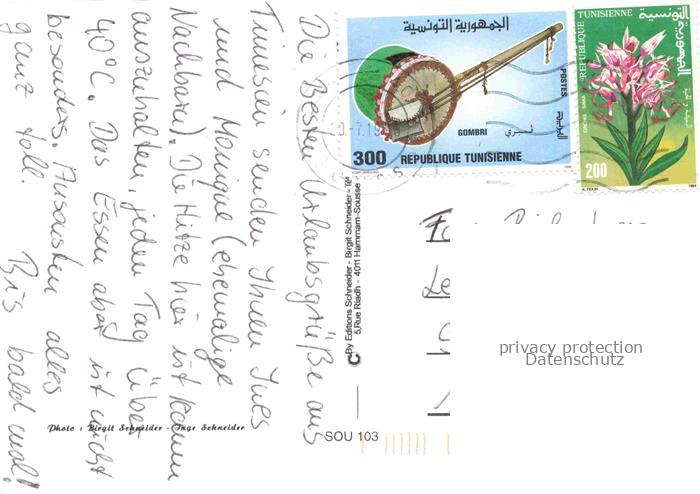 Die besten Urlaubsgrüße aus
Tunesien senden Ihnen Ines
und Monique (ehemalige
Nachbarn). Die Hitze hier ist kaum
auszuhalten, jeden Tag über
40°C. Das Essen aber ist nicht
besonders. Ansonsten alles
ganz toll. Bis bald mal!
Photo : Birgit Schneider - Inge Schneider
© By Editions Schneider - Birgit Schneider - Tél
5,Rue Riadh - 4011 Hammam-Sousse
SOU 103
الجمهورية التونسية
POSTES
البريد
GOMBRI
ڤمبري
300 REPUBLIQUE TUNISIENNE
REPUBLIQUE TUNISIENNE
الجمهورية التونسية
200
1994
privacy protection
Datenschutz